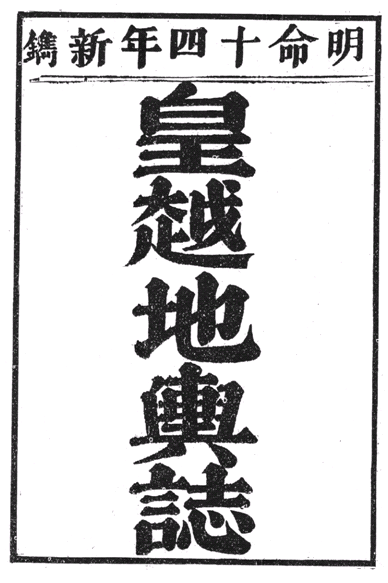 明命十四年新鐫
皇越地輿誌